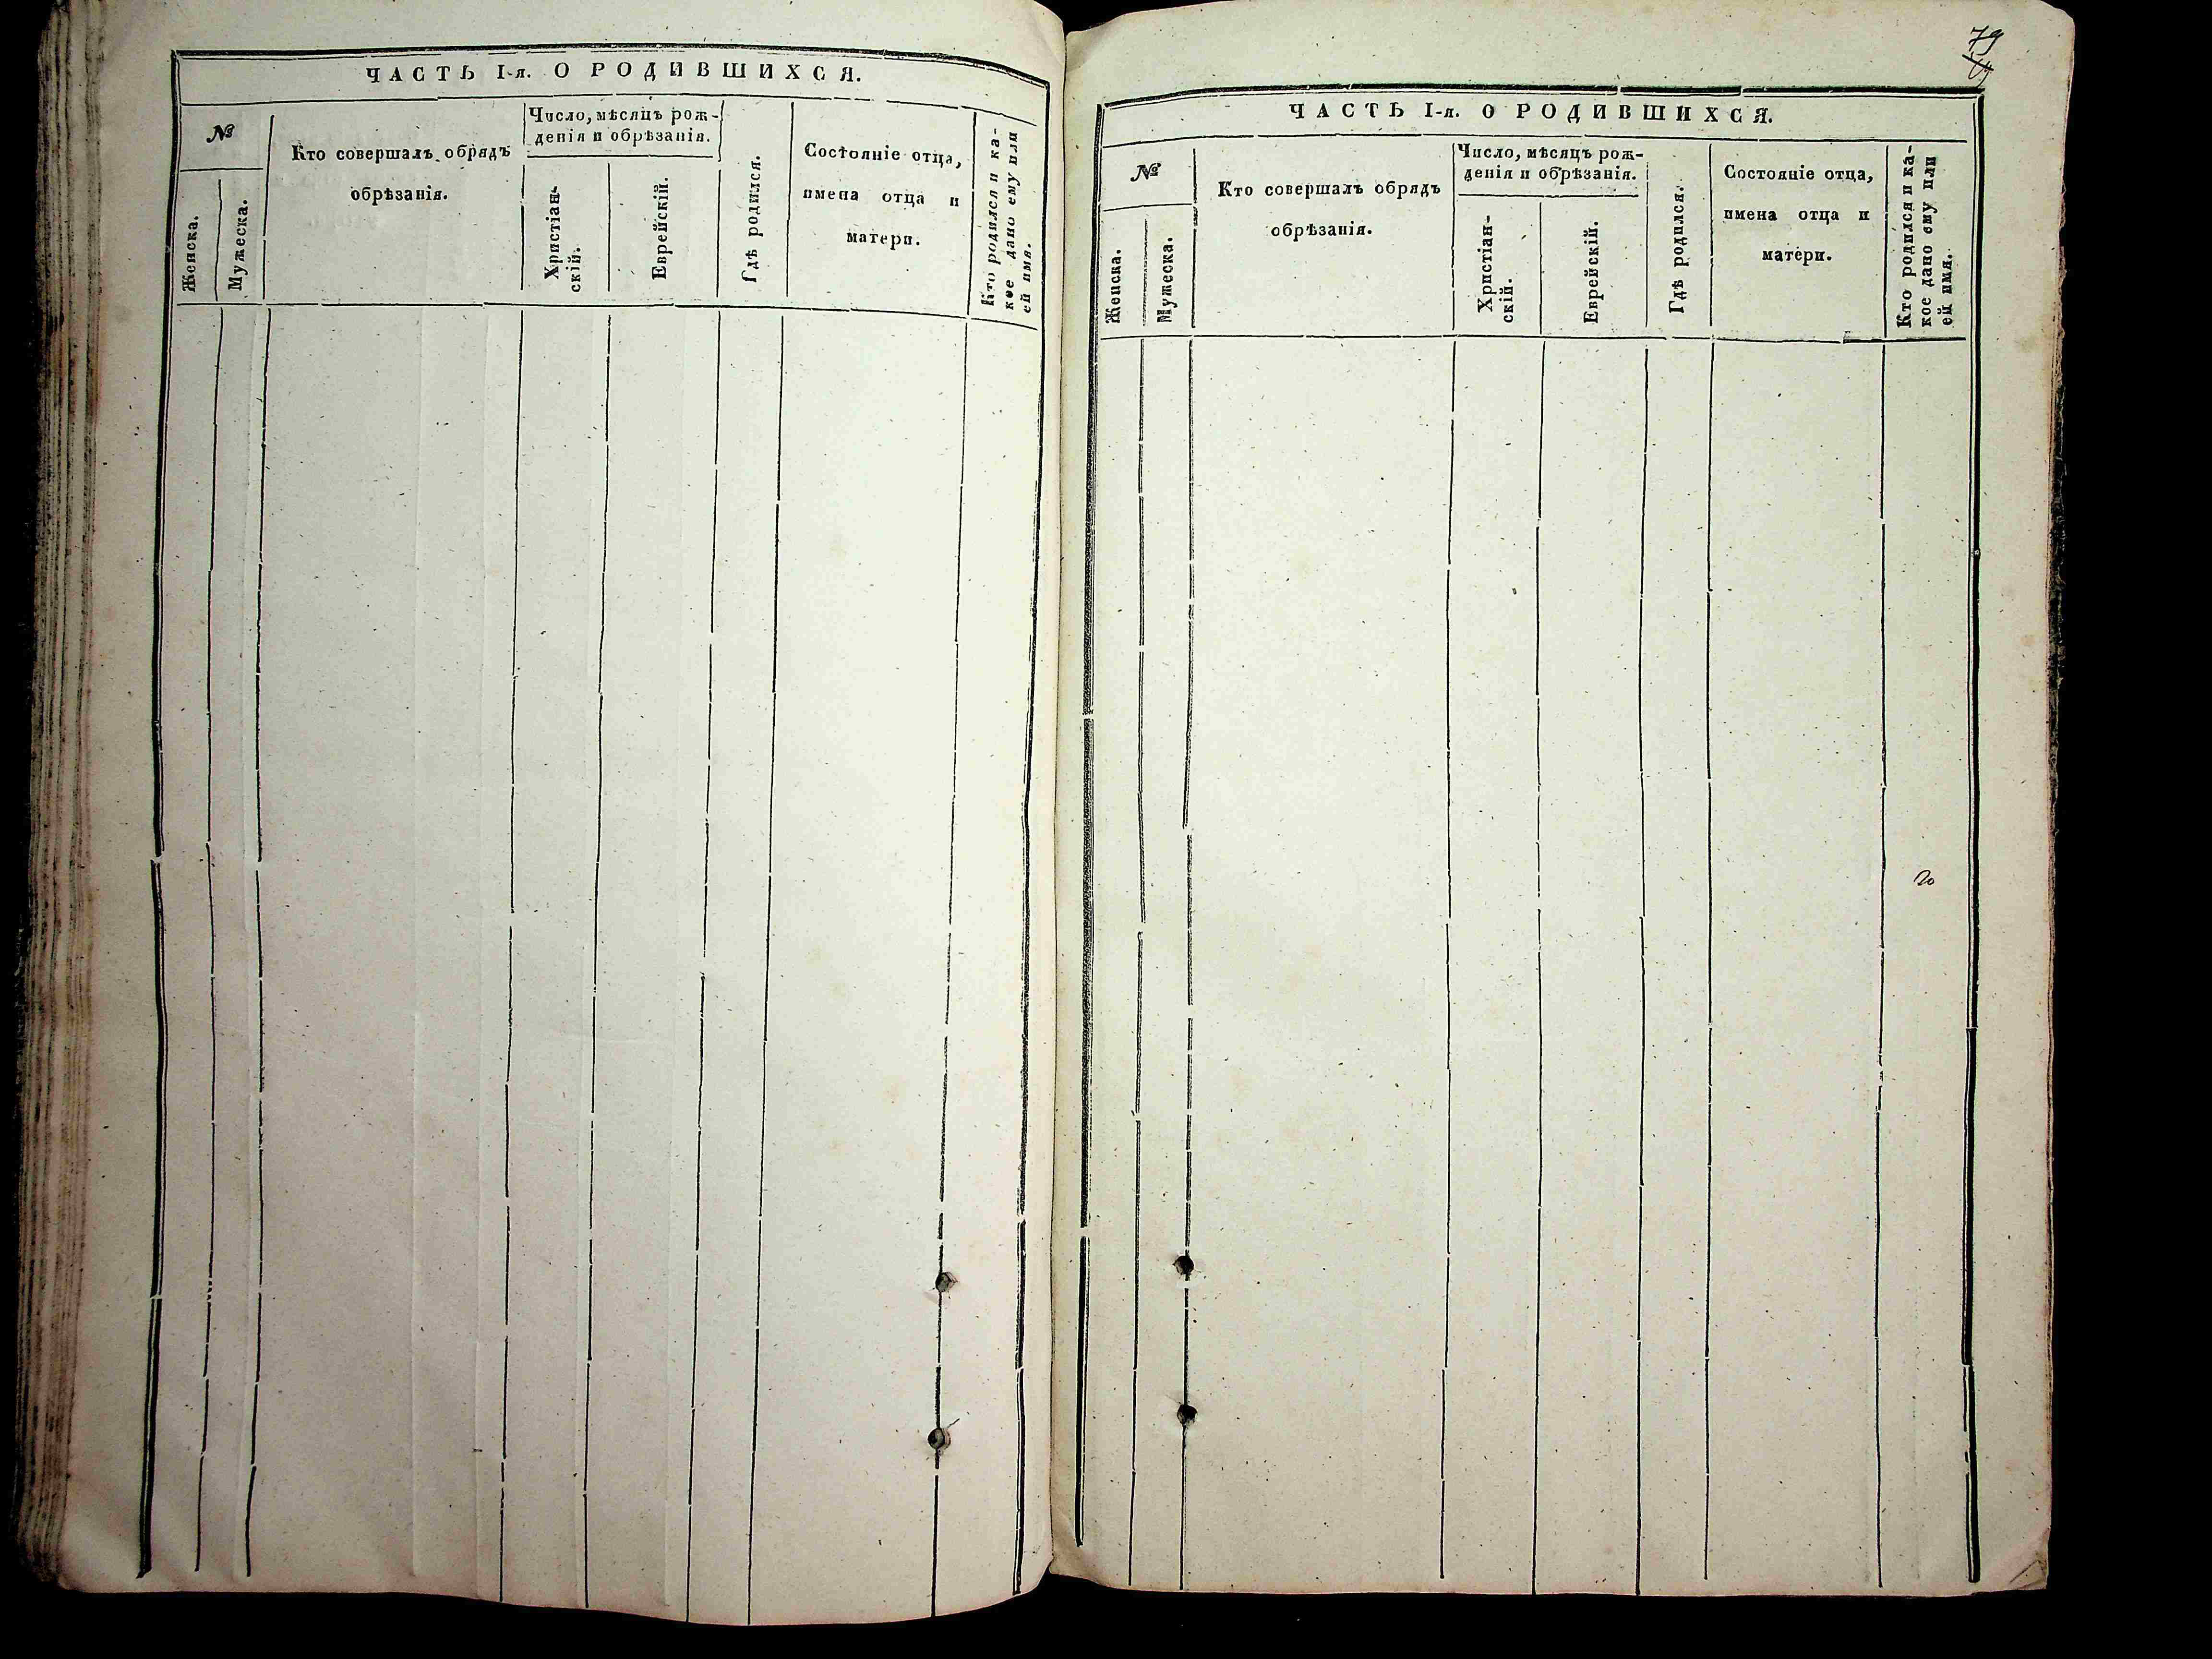 ЧАСТЬ I-я. О РОДИВШИХСЯ.
№
Женска.
Мужеска.
Кто совершалъ обрядъ
обрѣзанія.
Число, мѣсяцъ рож-
денія и обрѣзанія.
Христіан-
скій.
Еврейскій.
Гдѣ родился.
Состояніе отца,
имена отца и
матери.
Кто родился и ка-
кое дано ему или
ей имя.
79
ЧАСТЬ I-я. О РОДИВШИХСЯ.
№
Женска.
Мужеска.
Кто совершалъ обрядъ
обрѣзанія.
Число, мѣсяцъ рож-
денія и обрѣзанія.
Христіан-
скій.
Еврейскій.
Гдѣ родился.
Состояніе отца,
имена отца и
матери.
Кто родился и ка-
кое дано ему или
ей имя.